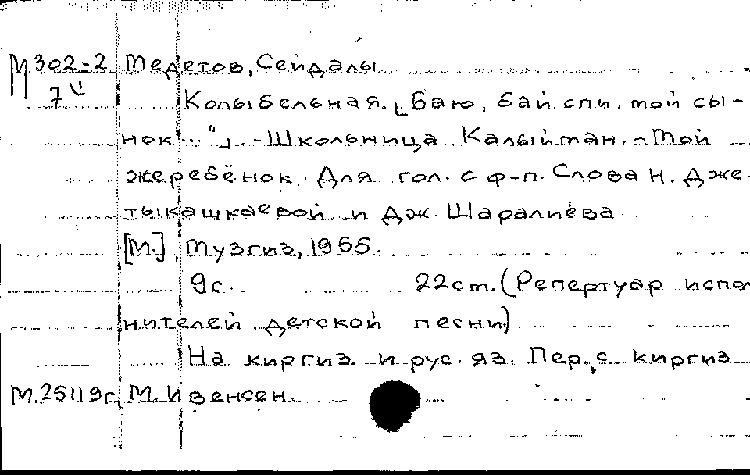 М 302-2 Медетов, Сейдалы
7
Колыбельная. "Баю, бай спи, мой сы-
нок..." - Школьница Калыйман. - Мой
жеребёнок. Для гол. с ф-п. Слова Н. Дже-
тыкашкаевой и Дж. Шаралиева
[М.] Музгиз, 1955.
9с. 22см. (Репертуар испол
нителей детской песни)
На киргиз. и рус. яз. Пер. с киргиз
М.25119г. М. Ивенсен.